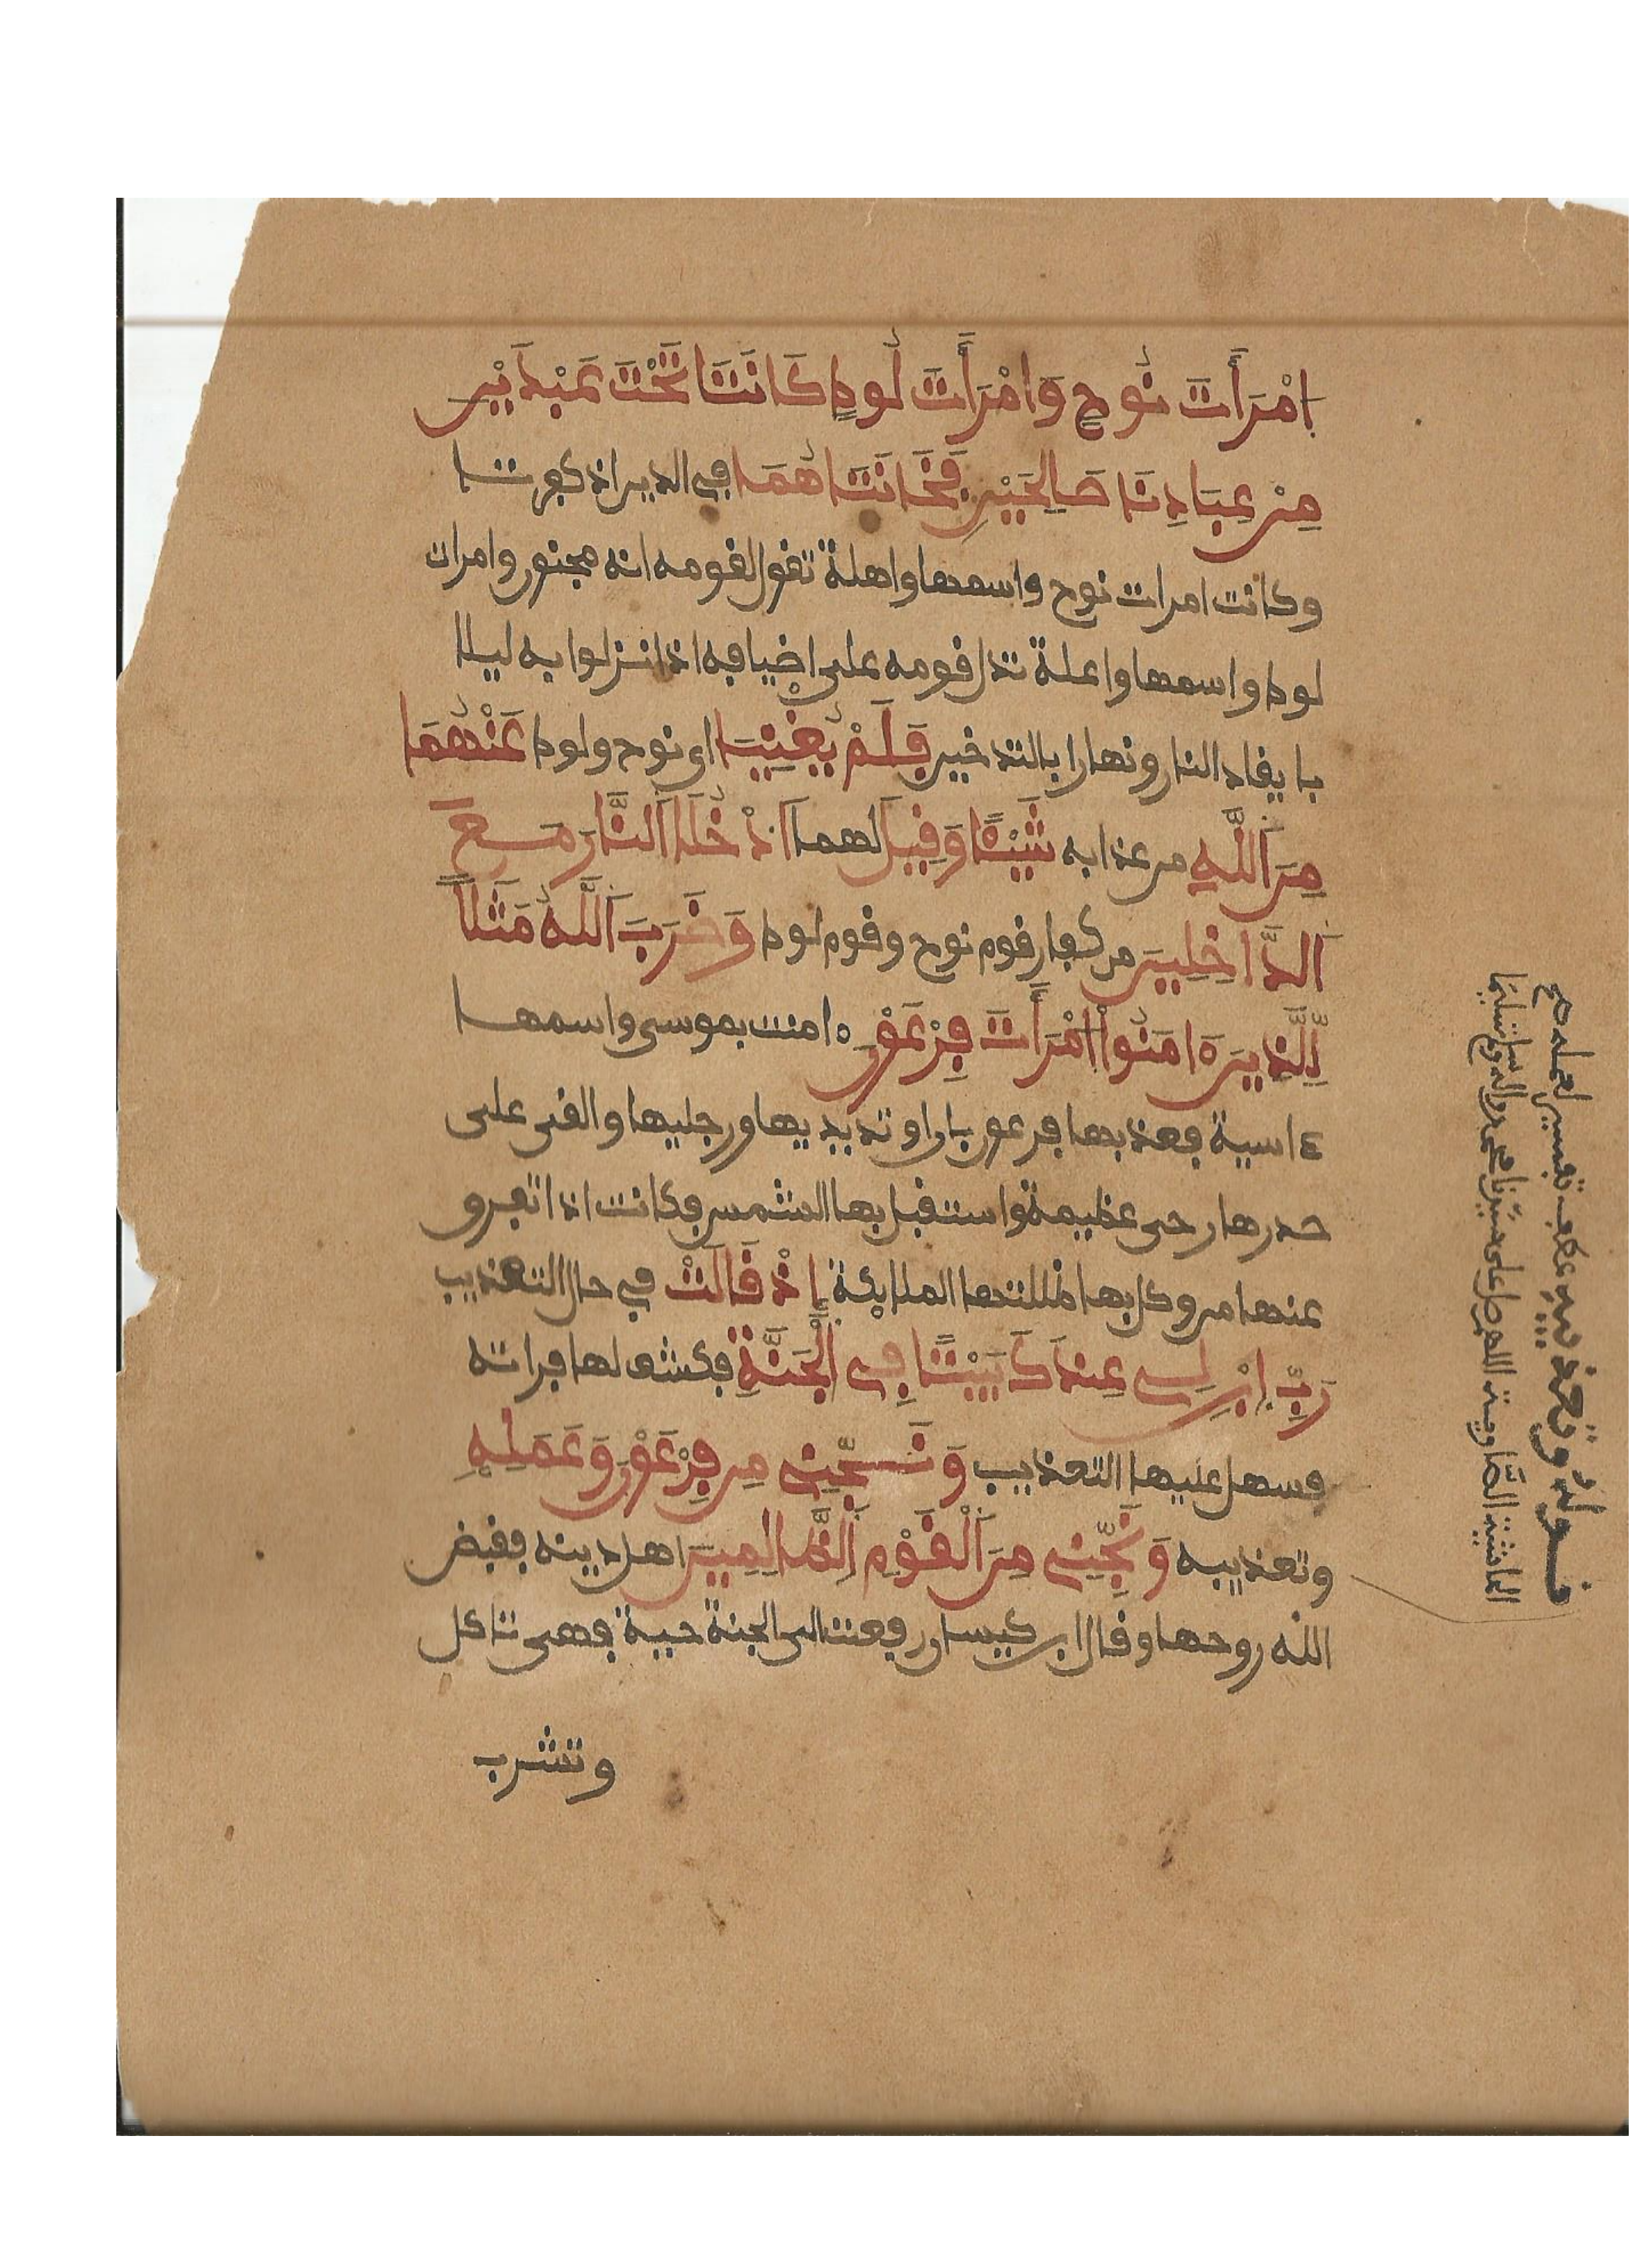 امْرَأَتَ نُوحٍ وَامْرَأَتَ لُوطٍ كَانَتَا تَحْتَ عَبْدَيْنِ
مِنْ عِبَادِنَا صَالِحَيْنِ فَخَانَتَاهُمَا في الدين اذ كفرتا
وكانت امرات نوح واسمها واهلة تقول لقومه انه مجنون وامرات
لوط واسمها واعلة تدل قومه على اضيافه اذا نزلوا به ليلا
بايقاد النار ونهارا بالتدخين فَلَمْ يُغْنِيَا اي نوح ولوط عَنْهُمَا
مِنَ اَللَّهِ من عذابه شَيْئًا وَقِيلَ لهما اَدْخُلَا اَلنَّارَ مَعَ
اَلدَّاخِلِينَ من كفار قوم نوح وقوم لوط وَضَرَبَ اَللَّهُ مَثَلًا
لِّلَّذِينَ ءَامَنُواْ اَمْرَأَتَ فِرْعَوْنَ ءامنت بموسى واسمها
ءاسية فعذبها فرعون بان اوتد يديها ورجليها والقى على
صدرها رحى عظيمة واستقبل بها الشمس فكانت اذا تفرق
عنها من وكل بها ظللتها الملايكة إِذْ قَالَتْ في حال التعذيب
رَبِّ اِبْنِ لِي عِندَكَ بَيْتًا فِي اِلْجَنَّةِ فكشف لها فراته
فسهل عليها التعذيب وَنَجِّنِي مِن فِرْعَوْنَ وَعَمَلِهِ
وتعذيبه وَنَجِّنِي مِنَ اَلْقَوْمِ اِلظَّالِمِينَ اهل دينه فقبض
الله روحها وقال ابن كيسان رفعت الى الجنة حية فهي تاكل
وتشرب
قوله وتعذيبه عطف تفسير لعمله صح